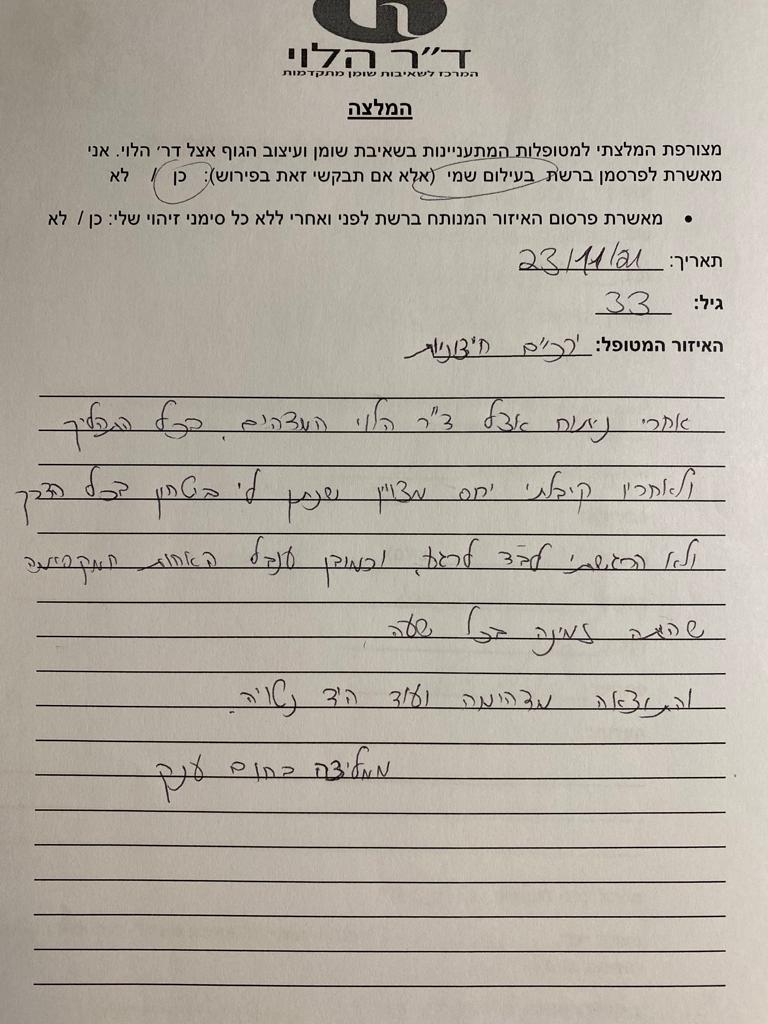 ד״ר הלוי
המרכז לשאיבות שומן מתקדמות
המלצה
מצורפת המלצתי למטופלות המתעניינות בשאיבת שומן ועיצוב הגוף אצל דר׳ הלוי. אני
מאשרת לפרסמן ברשת בעילום שמי (אלא אם תבקשי זאת בפירוש): כן / לא
• מאשרת פרסום האיזור המנותח ברשת לפני ואחרי ללא כל סימני זיהוי שלי: כן / לא
תאריך: 23/11/21
גיל: 33
האיזור המטופל: ירכיים חיצוניות
אחרי ניתוח אצל ד"ר הלוי המדהים. בכל התהליך
ולאחריו קיבלתי יחס מצויין שנתן לי ביטחון בכל הדרך
ולא הרגשתי לבד לרגע. וכמובן ענבל האחות המקסימה
שהיתה זמינה בכל שעה.
והתוצאה מדהימה ועוד היד נטויה.
ממליצה בחום ענק